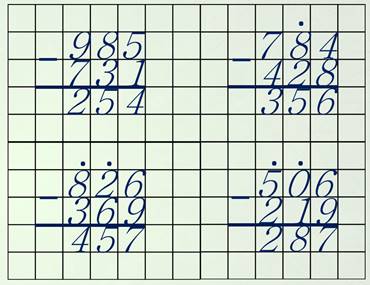 985
- 731
254
784
- 428
356
826
- 369
457
506
- 219
287